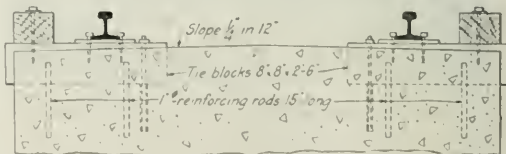 Slope ¼" in 12"
Tie blocks 8"x8"x2'-6"
1"ᶲ reinforcing rods 15" long